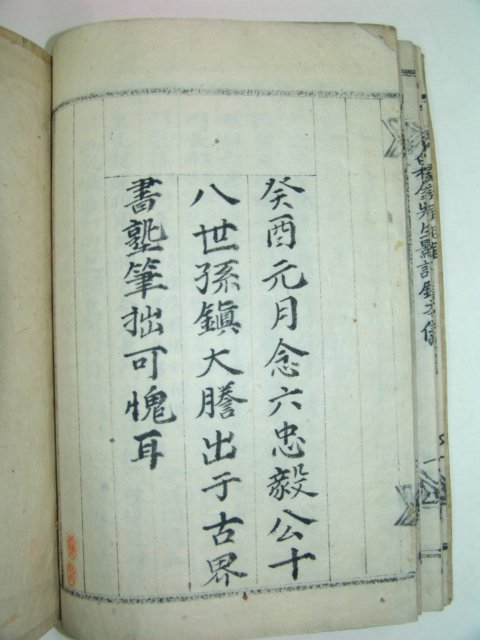 癸酉元月念六忠毅公十
八世孫鎭大謄出于古界
書塾筆拙可愧耳